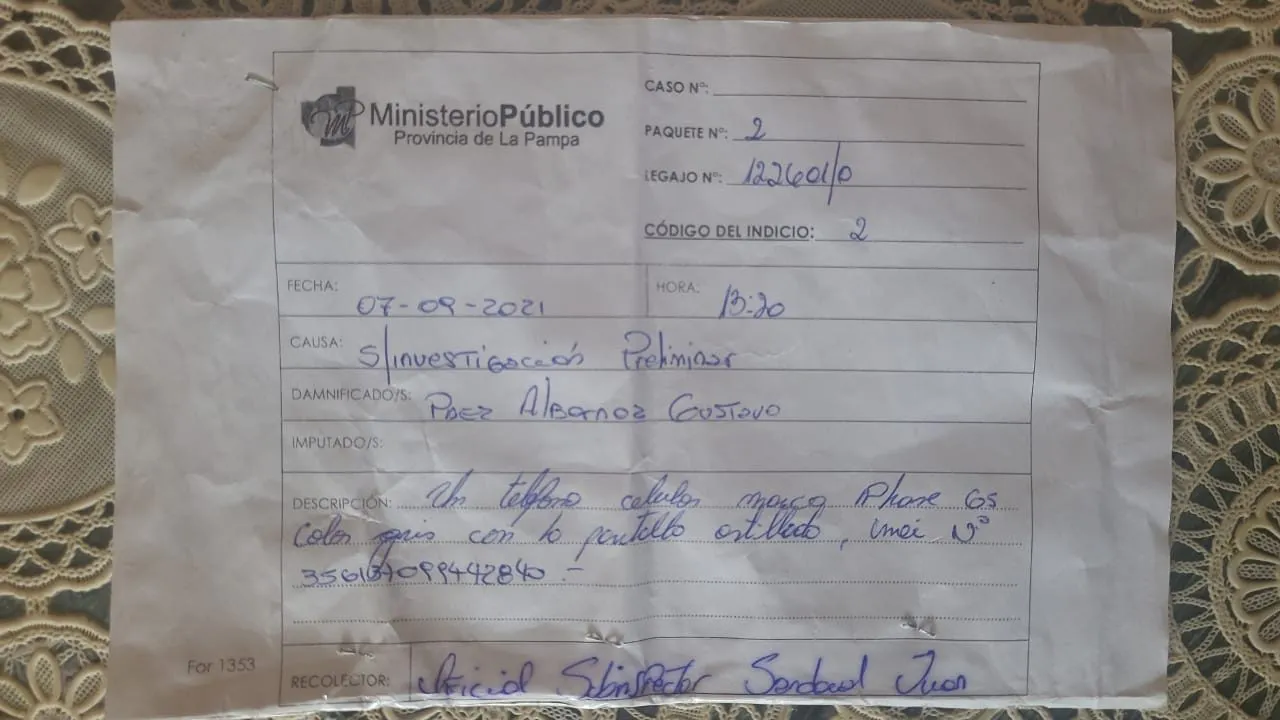 MinisterioPúblico
Provincia de La Pampa
CASO Nº:
PAQUETE Nº: 2
LEGAJO Nº: 122601/0
CÓDIGO DEL INDICIO: 2
FECHA: 07-09-2021
HORA: 13:20
CAUSA: S/investigación Preliminar
DAMNIFICADO/S: Paez Albornoz Gustavo
IMPUTADO/S:
DESCRIPCIÓN: Un teléfono celular marca iPhone 6s
Color gris con la pantalla astillada, imei Nº
356137099442840.-
For 1353
RECOLECTOR: Oficial Subinspector Sandoval Juan